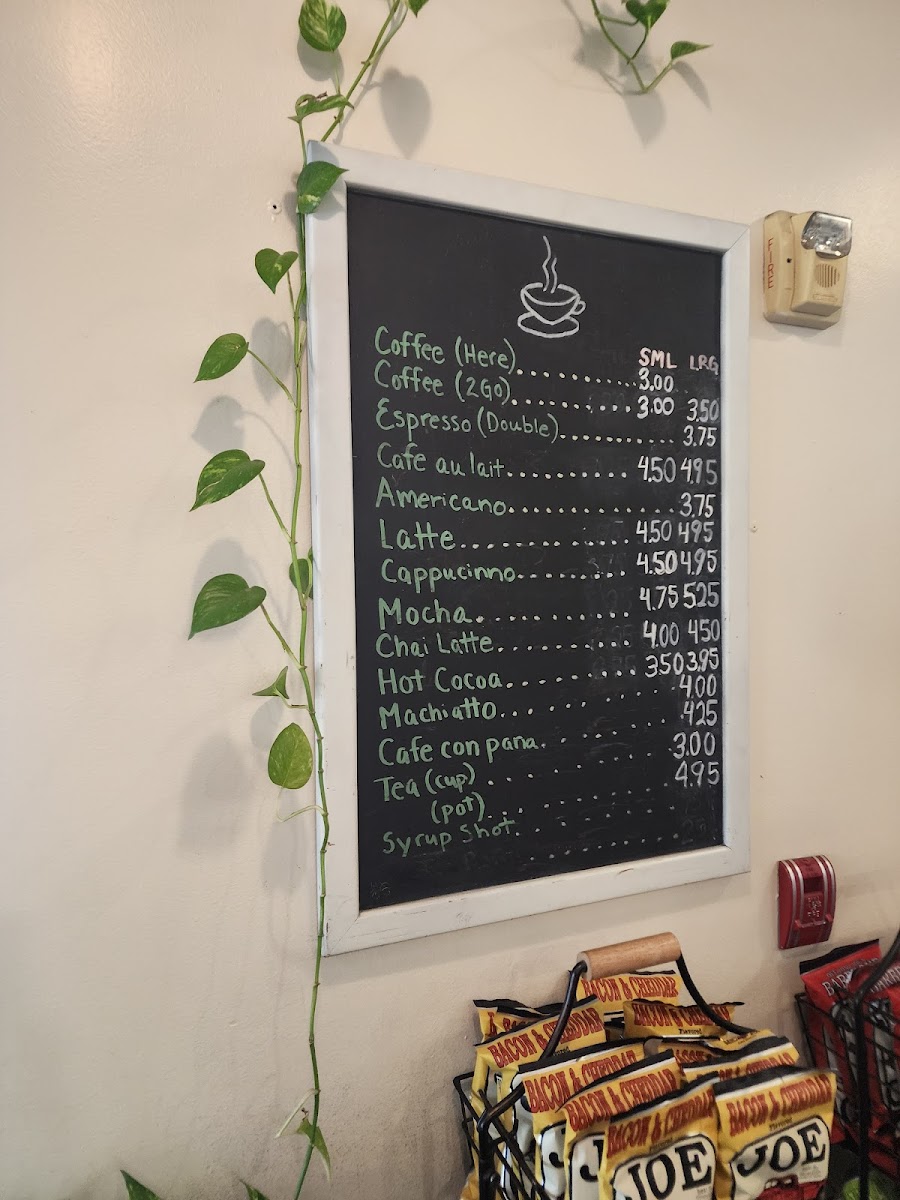 SML LRG
Coffee (Here).............3.00
Coffee (2Go)............3.00 3.50
Espresso (Double)............3.75
Cafe au lait............4.50 4.95
Americano..................3.75
Latte............4.50 4.95
Cappucinno.........4.50 4.95
Mocha............4.75 525
Chai Latte............4.00 450
Hot Cocoa............350 3.95
Machiatto............4.00
Cafe con pana............425
Tea (cup)............3.00
(pot)............4.95
Syrup Shot............
FIRE
BACON & CHEDDAR
BACON & CHEDDAR
BACON & CHEDDAR
BACON & CHEDDAR
BACON & CHEDDAR
BACON & CHEDDAR
JOE
JOE